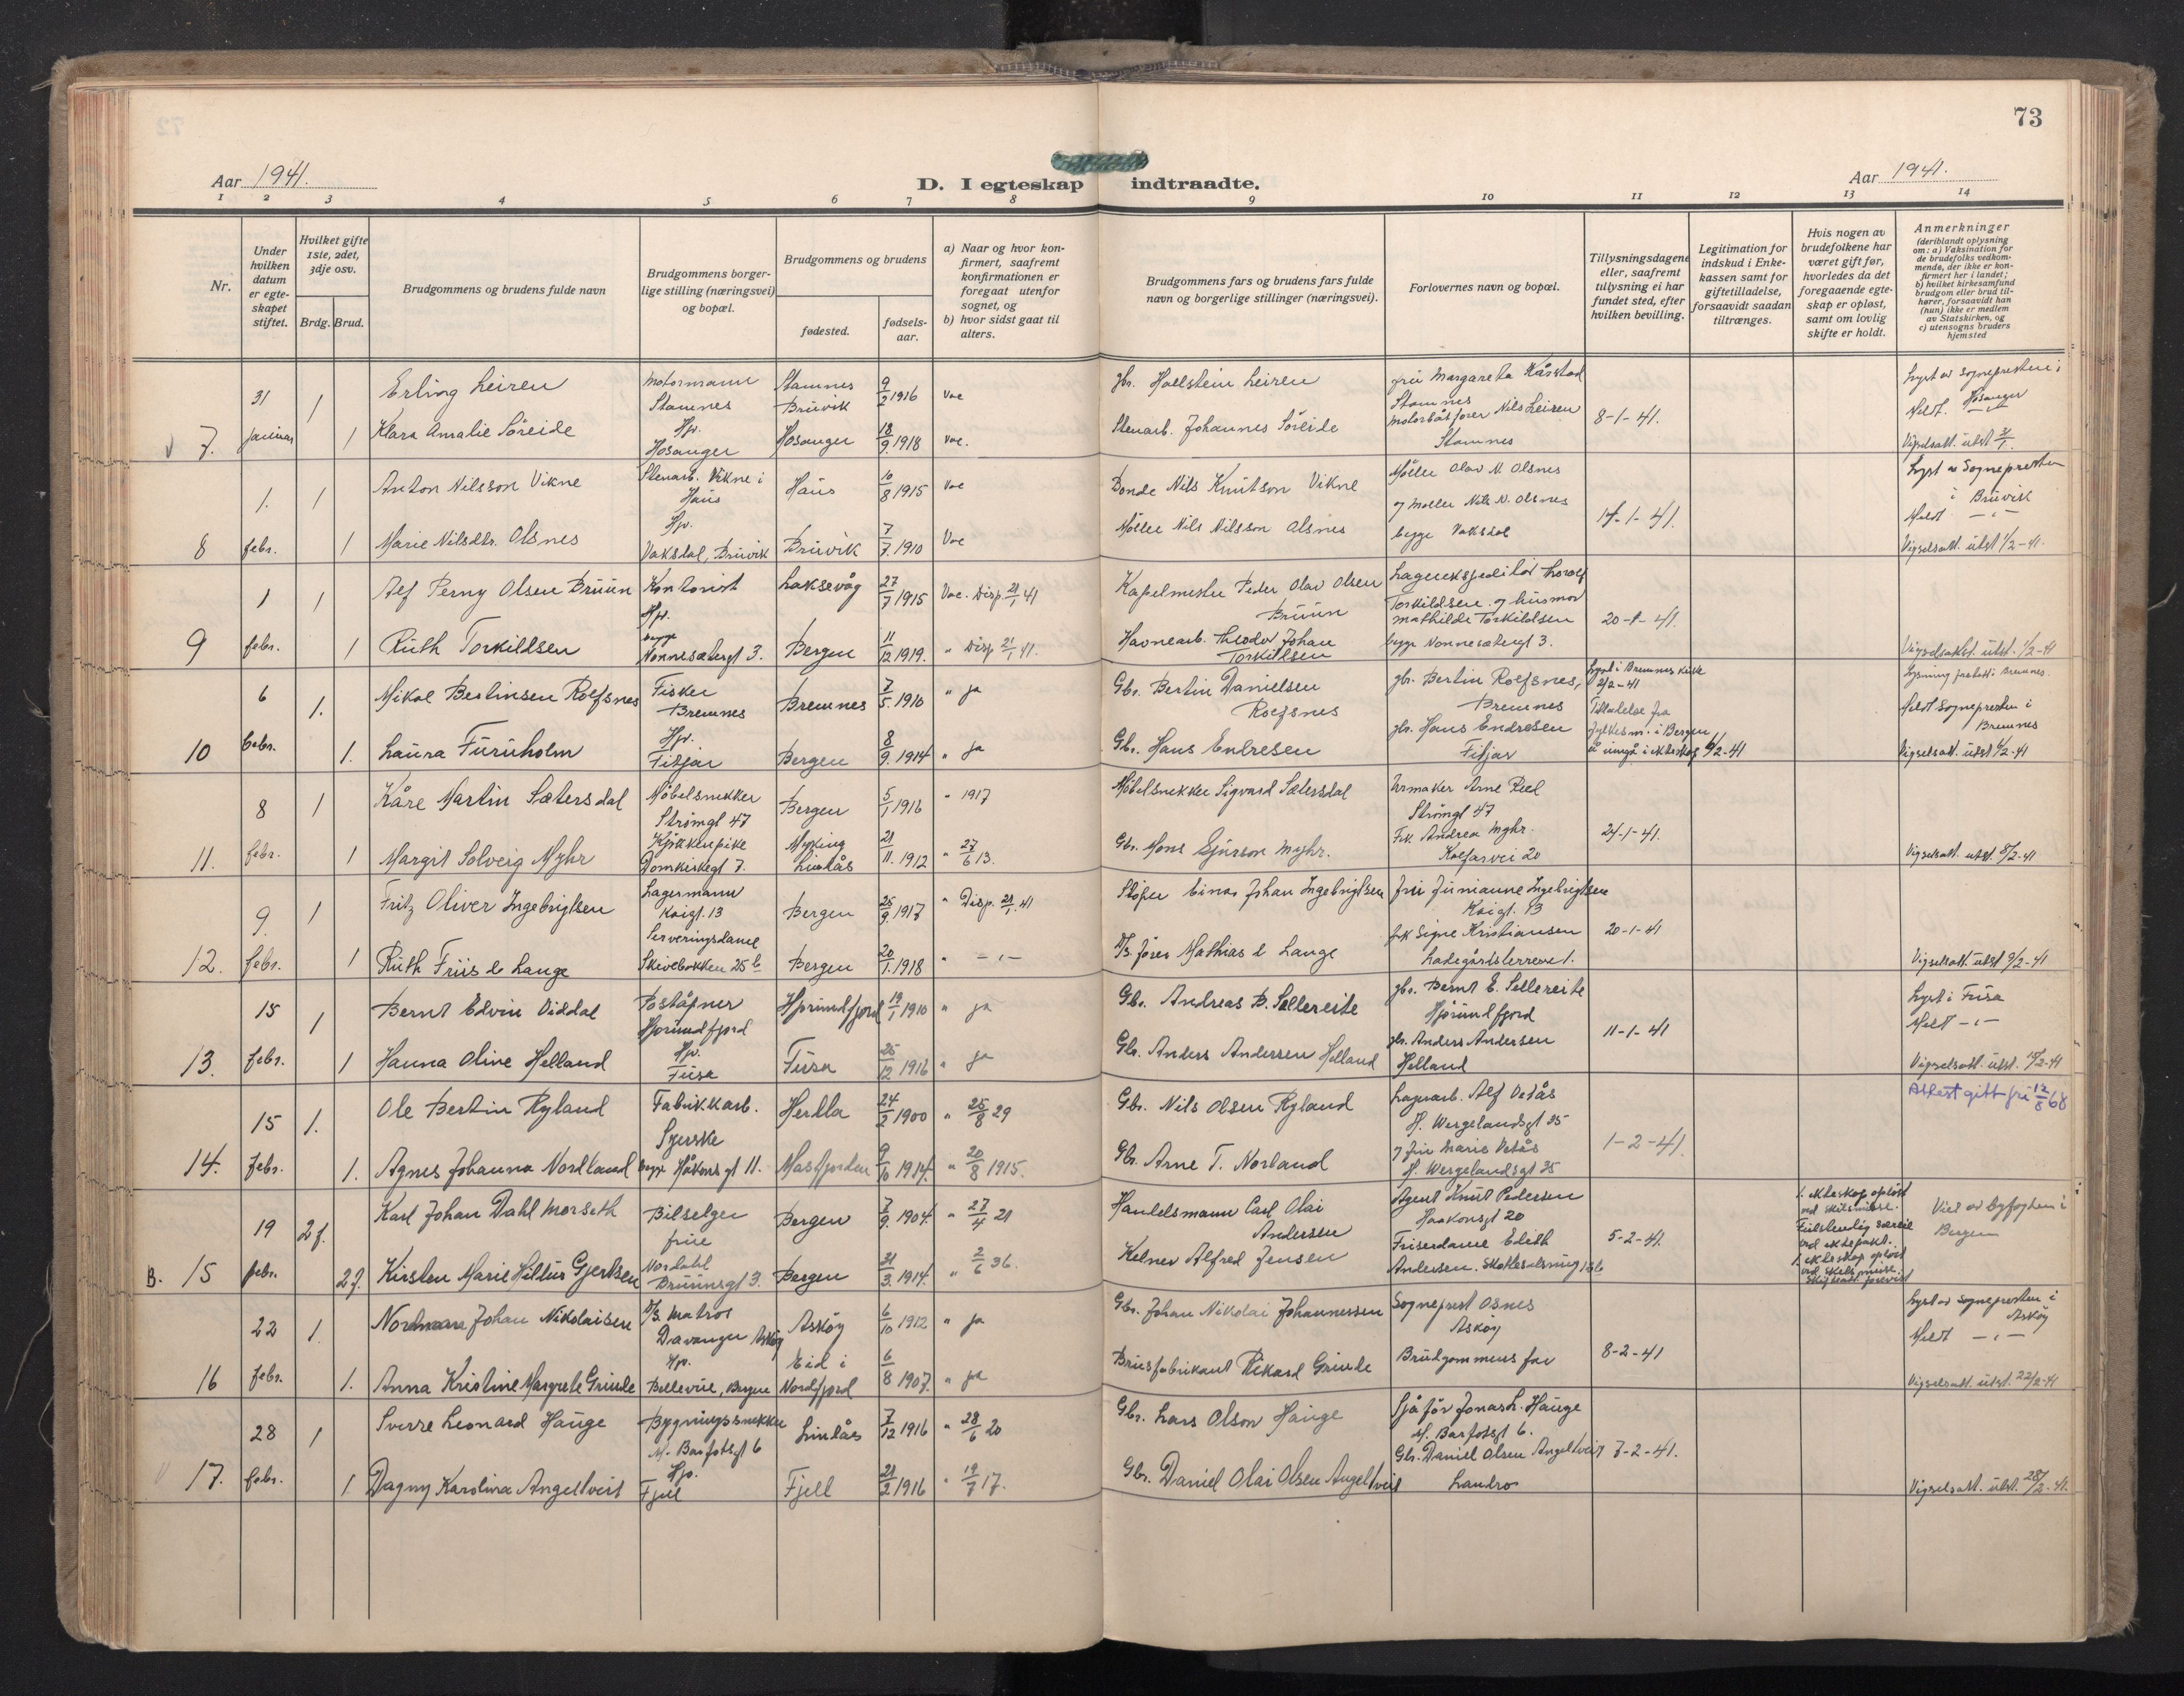 73
Aar 1941.
D. I egteskap indtraadte.
Aar 1941.
1 2 3 4 5 6 7 8 9 10 11 12 13 14
Nr.
Under hvilken datum er egte-skapet stiftet.
Hvilket gifte 1ste, 2det, 3dje osv.
Brdg. Brud.
Brudgommens og brudens fulde navn
Brudgommens borger-lige stilling (næringsvei) og bopæl.
Brudgommens og brudens
fødested.
fødsels-aar.
a) Naar og hvor kon-firmert, saafremt konfirmationen er foregaat utenfor sognet, og
b) hvor sidst gaat til alters.
Brudgommens fars og brudens fars fulde navn og borgerlige stillinger (næringsvei).
Forlovernes navn og bopæl.
Tillysningsdagene eller, saafremt tillysning ei har fundet sted, efter hvilken bevilling.
Legitimation for indskud i Enke-kassen samt for giftetilladelse, forsaavidt saadan tiltrænges.
Hvis nogen av brudefolkene har været gift før, hvorledes da det foregaaende egte-skap er opløst, samt om lovlig skifte er holdt.
Anmerkninger
(deriblandt oplysning om: a) Vaksination for de brudefolks vedkom-mende, der ikke er kon-firmert her i landet;
b) hvilket kirkesamfund brudgom eller brud til-hører, forsaavidt han (hun) ikke er medlem av Statskirken, og
c) utensogns bruders hjemsted
31 1 Erling Leiren Motormann Stamnes Stamnes Bruvik 9/2 1916 Vac gbr. Hallstein Leiren fru Margareta Kårstad Stamnes Lyst av Sognepresten i Hosanger
7. januar 1 Klara Amalie Söreide Hp. Hosanger Hosanger 18/9 1918 Vac. Stenarb. Johannes Söreide motorbåtförer Nils Leiren Stamnes 8-1-41. Meldt -"- Vigselsatt. utst 31/1
1. 1 Anton Nilsson Vikne Stenarb. Vikne i Haus Haus 10/8 1915 Vac Bonde Nils Knutson Vikne Möller Olav N. Olsnes Lyst av Sognepresten i Bruvik
8 febr. 1 Marie Nilsdtr. Olsnes Hp. Vaksdal, Bruvik Bruvik 7/7 1910 Vac Möller Nils Nilsson Olsnes og Möller Nils N. Olsnes begge Vaksdal 14-1-41. Meldt -"- Vigselsatt. utst 1/2-41.
1 1 Alf Perny Olsen Bruun Kontorist Laksevåg 27/7 1915 Vac. Disp. 21/1 41 Kapelmester Peder Olav Olsen Bruun Lagerekspeditör Thorolf Torkildsen og husmor
9 febr. 1 Ruth Torkildsen Hp. begge Nonnesætergt 3. Bergen 11/12 1919. " Disp 21/1 41. Havnearb. Theodor Johan Torkildsen Mathilde Torkildsen begge Nonnesætergt 3. 20-1-41. Vigselsatt. utst. 1/2-41
6 1. Mikal Bertinsen Rolfsnes Fisker Bremnes Bremnes 7/5 1910 " ja Gbr. Bertin Danielsen Rolfsnes gbr. Bertin Rolfsnes, Bremnes Lyst i Bremnes kirke 2/2-41 Lysning i Bremnes.
10 febr. 1. Laura Furuholm Hp. Fitjar Bergen 8/9 1914 " ja Gbr. Hans Endresen gbr. Hans Endresen Fitjar Tillatelse fra fylkesm. i Bergen å inngå i ekteskap 6/2-41 Meldt Sognepresten i Bremnes Vigselsatt. utst 6/2-41
8 1 Kåre Martin Sætersdal Möbelsnekker Strömgt 47 Bergen 5/1 1916 " 1917 Möbelsnekker Sigvard Sætersdal Urmaker Arne Strömgt 47
11. febr. 1 Margit Solveig Myhr Kjøkkenpike Domkirkegt 7. Myking Lindås 21/11. 1912 " 27/6 13. Gbr. Mons Sjurson Myhr. Frk. Andrea Myhr. Kalfarvei 20 24-1-41. Vigselsatt. utst. 8/2-41
9. 1 Fritz Oliver Ingebrigtsen Lagermann Kaigt. 13 Bergen 25/9 1917 " Disp. 21/1 41 Stöper Einar Johan Ingebrigtsen fru Junianne Ingebrigtsen Kaigt. 13
12. febr. 1 Ruth Friis de Lange Serveringsdame Skivebakken 25 b Bergen 20/1. 1918 " -"- D/S förer Mathias de Lange frk Signe Kristiansen Ladegårdsterrene 1. 20-1-41 Vigselsatt. utst 9/2-41
15 1 Bernt Edvin Viddal Poståpner Hjörundfjord Hjörundfjord 19/1 1910 " ja Gbr. Andreas B. Sellereite gbr. Bernt E. Sellereite Hjörundfjord Lyst i Fusa
13. febr. 1 Hanna Oline Helland Hp. Fusa Fusa 25/12 1916 " ja Gbr. Anders Andersen Helland gbr. Anders Andersen Helland 11-1-41 Meldt -"- Vigselsatt. utst. 15/2-41
15 1. Ole Bertin Ryland Fabrikkarb. Herdla 24/2 1900 " 25/8 29 Gbr. Nils Olsen Ryland Lagerarb. Alf Vetås H. Wergelandsgt 25 Attest gitt fru 12/8 68
14. febr. 1. Agnes Johanna Nordland Syerske begge Håkonsgt 11. Masfjorden 9/10 1914. " 20/8 1915. Gbr. Arne T. Norland og fru Marie Vetås H. Wergelandsgt 25 1-2-41.
19 2 g. Karl Johan Dahl Morseth Bilselger Bergen 7/9. 1904. " 27/4 21 Handelsmann Carl Olai Andersen Agent Knut Pedersen Haakonsgt 20 1. ekteskap oplöst ved skilsmisse. Fullstendig særeie ved ektepakt. Viet av byfogden i Bergen
B. 15 febr. 2 g. Kirsten Marie Hillur Gjertsen frue Nordahl Bruunsgt 3. Bergen 31/3. 1914. " 2/6 36. Kelner Alfred Jensen Friserdame Edith Andersen. 5-2-41. 1. ekteskap oplöst ved skilsmisse. Skifteatt. forevist
22 1. Nordmann Johan Nikolaisen D/S. Matros Davanger Asköy Asköy 6/10 1912 " ja Gbr. Johan Nikolai Johannessen Sogneprest Osnes Asköy Lyst av Sognepresten i Asköy
16 febr. 1. Anna Kristine Margrete Grinde Hp. Bellevue, Bergen Eid i Nordfjord 6/8 1907. " ja Brusfabrikant Rikard Grinde Brudgommens far 8-2-41 Meldt -"- Vigselsatt. utst. 22/2-41
28 1 Sverre Leonard Hauge Bygningssnekker M. Barfotsgt 6 Lindås 7/12 1916 " 28/6 20 Gbr. Lars Olson Hauge Sjåför Jonas L. Hauge M. Barfotsgt 6.
17. febr. 1. Dagny Karolina Angeltveit Hp. Fjell Fjell 21/2 1916 " 19/7 17. Gbr. Daniel Olai Olsen Angeltveit Gbr. Daniel Olsen Angeltveit Landro 7-2-41. Vigselsatt. utst. 28/2-41.